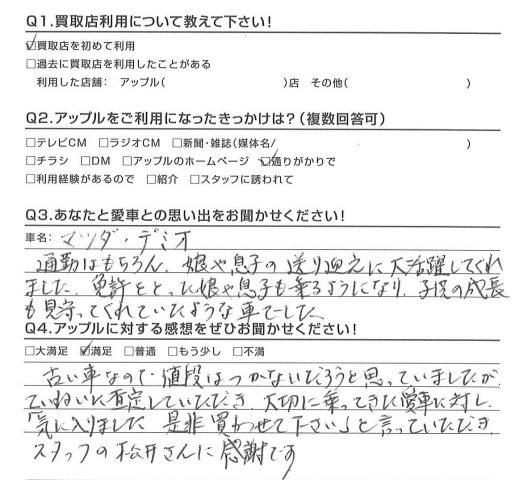 Q1.買取店利用について教えて下さい!
☑買取店を初めて利用
□過去に買取店を利用したことがある
利用した店舗: アップル( )店 その他( )
Q2.アップルをご利用になったきっかけは?(複数回答可)
□テレビCM □ラジオCM □新聞・雑誌(媒体名/ )
□チラシ □DM □アップルのホームページ ☑通りがかりで
□利用経験があるので □紹介 □スタッフに誘われて
Q3.あなたと愛車との思い出をお聞かせください!
車名: マツダ・デミオ
通勤はもちろん、娘や息子の送り迎えに大活躍してくれ
ました。免許をとった娘や息子も乗るようになり、子供の成長
も見守ってくれていたような車でした。
Q4.アップルに対する感想をぜひお聞かせください!
□大満足 ☑満足 □普通 □もう少し □不満
古い車なので値段はつかないだろうと思っていましたが
ていねいに査定していただき、大切に乗ってきた愛車に対し、
「気に入りました 是非買わせて下さい」と言っていただき
スタッフの松井さんに感謝です